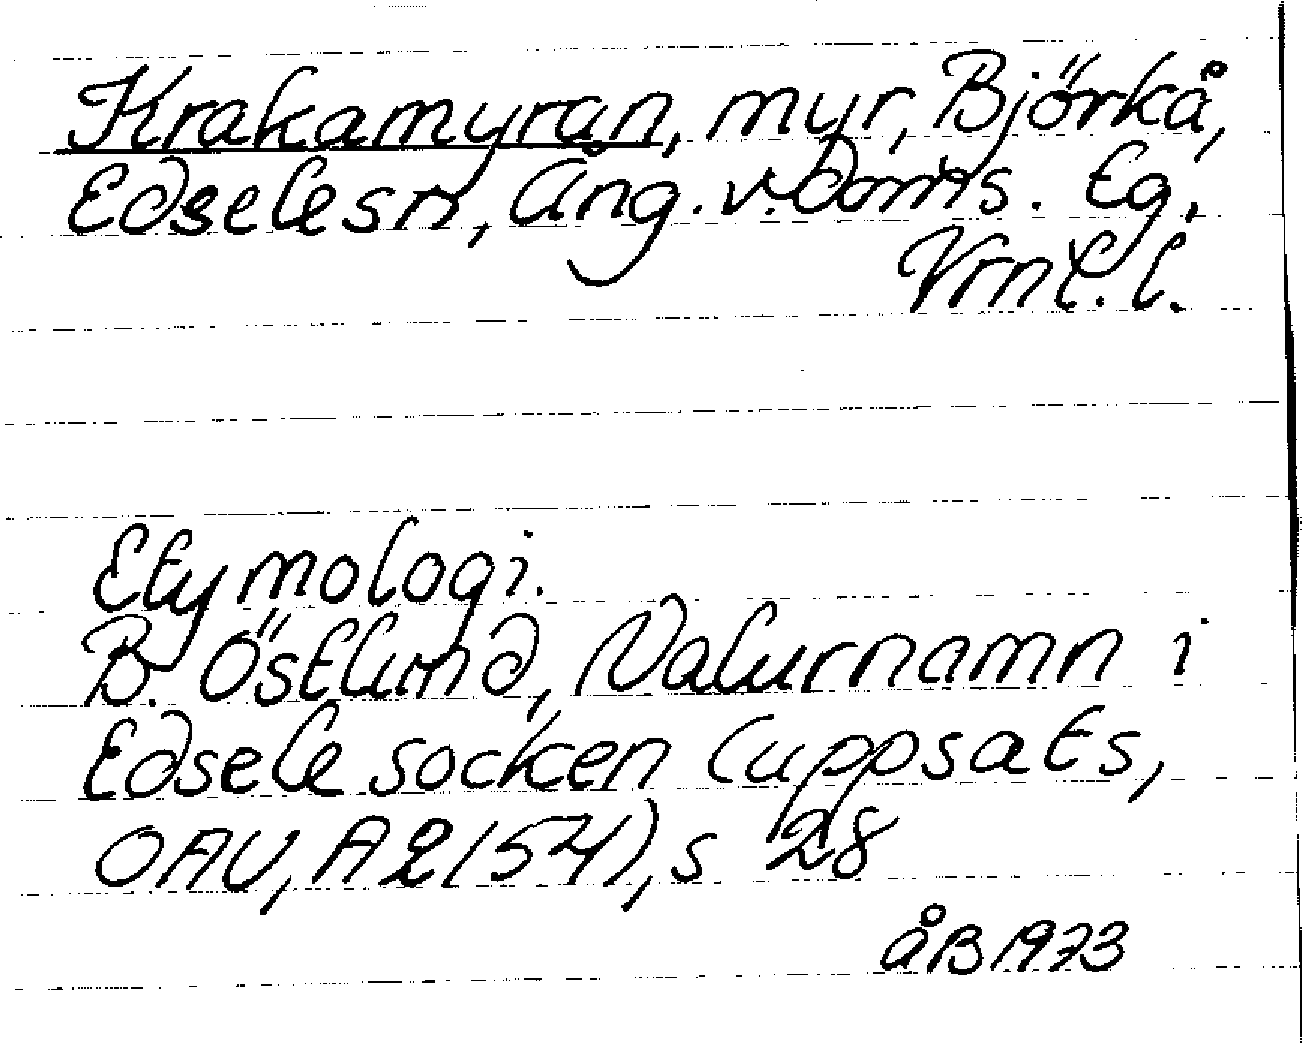 Krakamyran, myr, Björkå,
Edselesn, Ång. v. Doms. Eg.
Vrnl. l.
Etymologi.
B. Östlund, Naturnamn i
Edsele socken (uppsats,
OAU, A2154), s 28
åB 1973